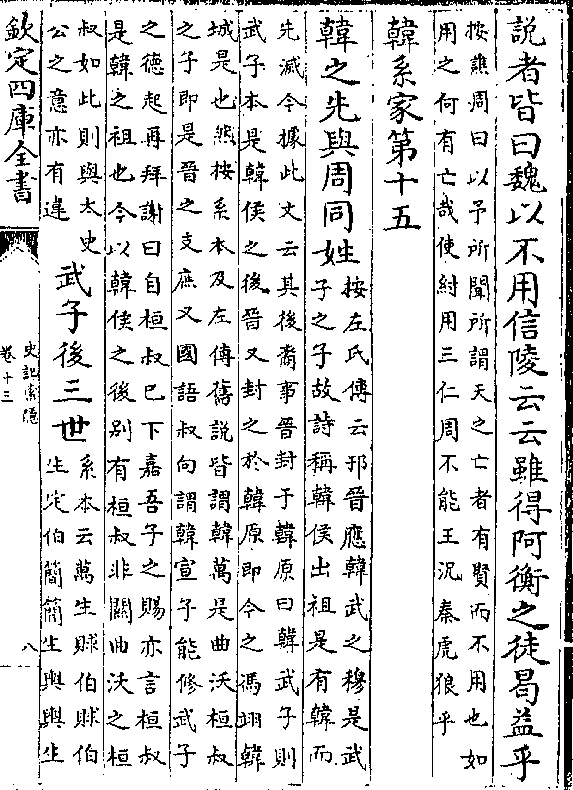 說者皆曰魏以不用信陵云云雖得阿衡之徒曷益乎
按譙周曰以予所聞所謂天之亡者有賢而不用也如
用之何有亡哉使紂用三仁周不能王況秦虎狼乎
韓系家第十五
韓之先與周同姓
按左氏傳云邘晉應韓武之穆是武
子之子故詩稱韓侯出祖是有韓而
先滅今據此文云其後裔事晉封于韓原曰韓武子則
武子本是韓侯之後晉又封之於韓原即今之馮翊韓
城是也然按系本及左傳舊說皆謂韓萬是曲沃桓叔
之子即是晉之支庶又國語叔向謂韓宣子能修武子
之德起再拜謝曰自桓叔已下嘉吾子之賜亦言桓叔
是韓之祖也今以韓侯之後别有桓叔非關曲沃之桓
叔如此則與太史
公之意亦有違
武子後三世
系本云萬生賕伯賕伯
生定伯簡簡生輿輿生
欽定四庫全書
史記索隱
卷十三
八